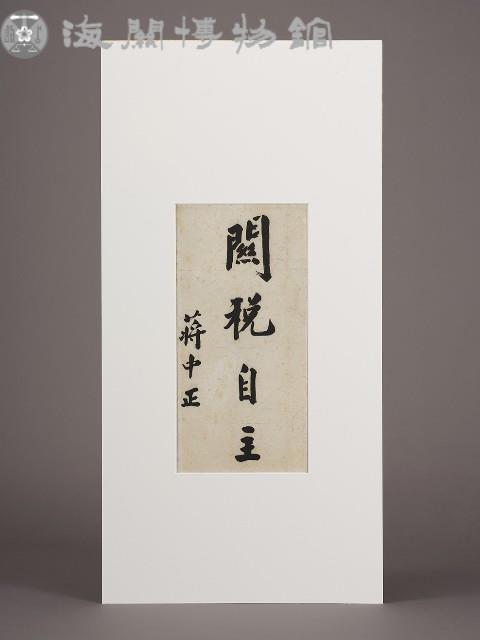 海關博物館
關税自主
蔣中正